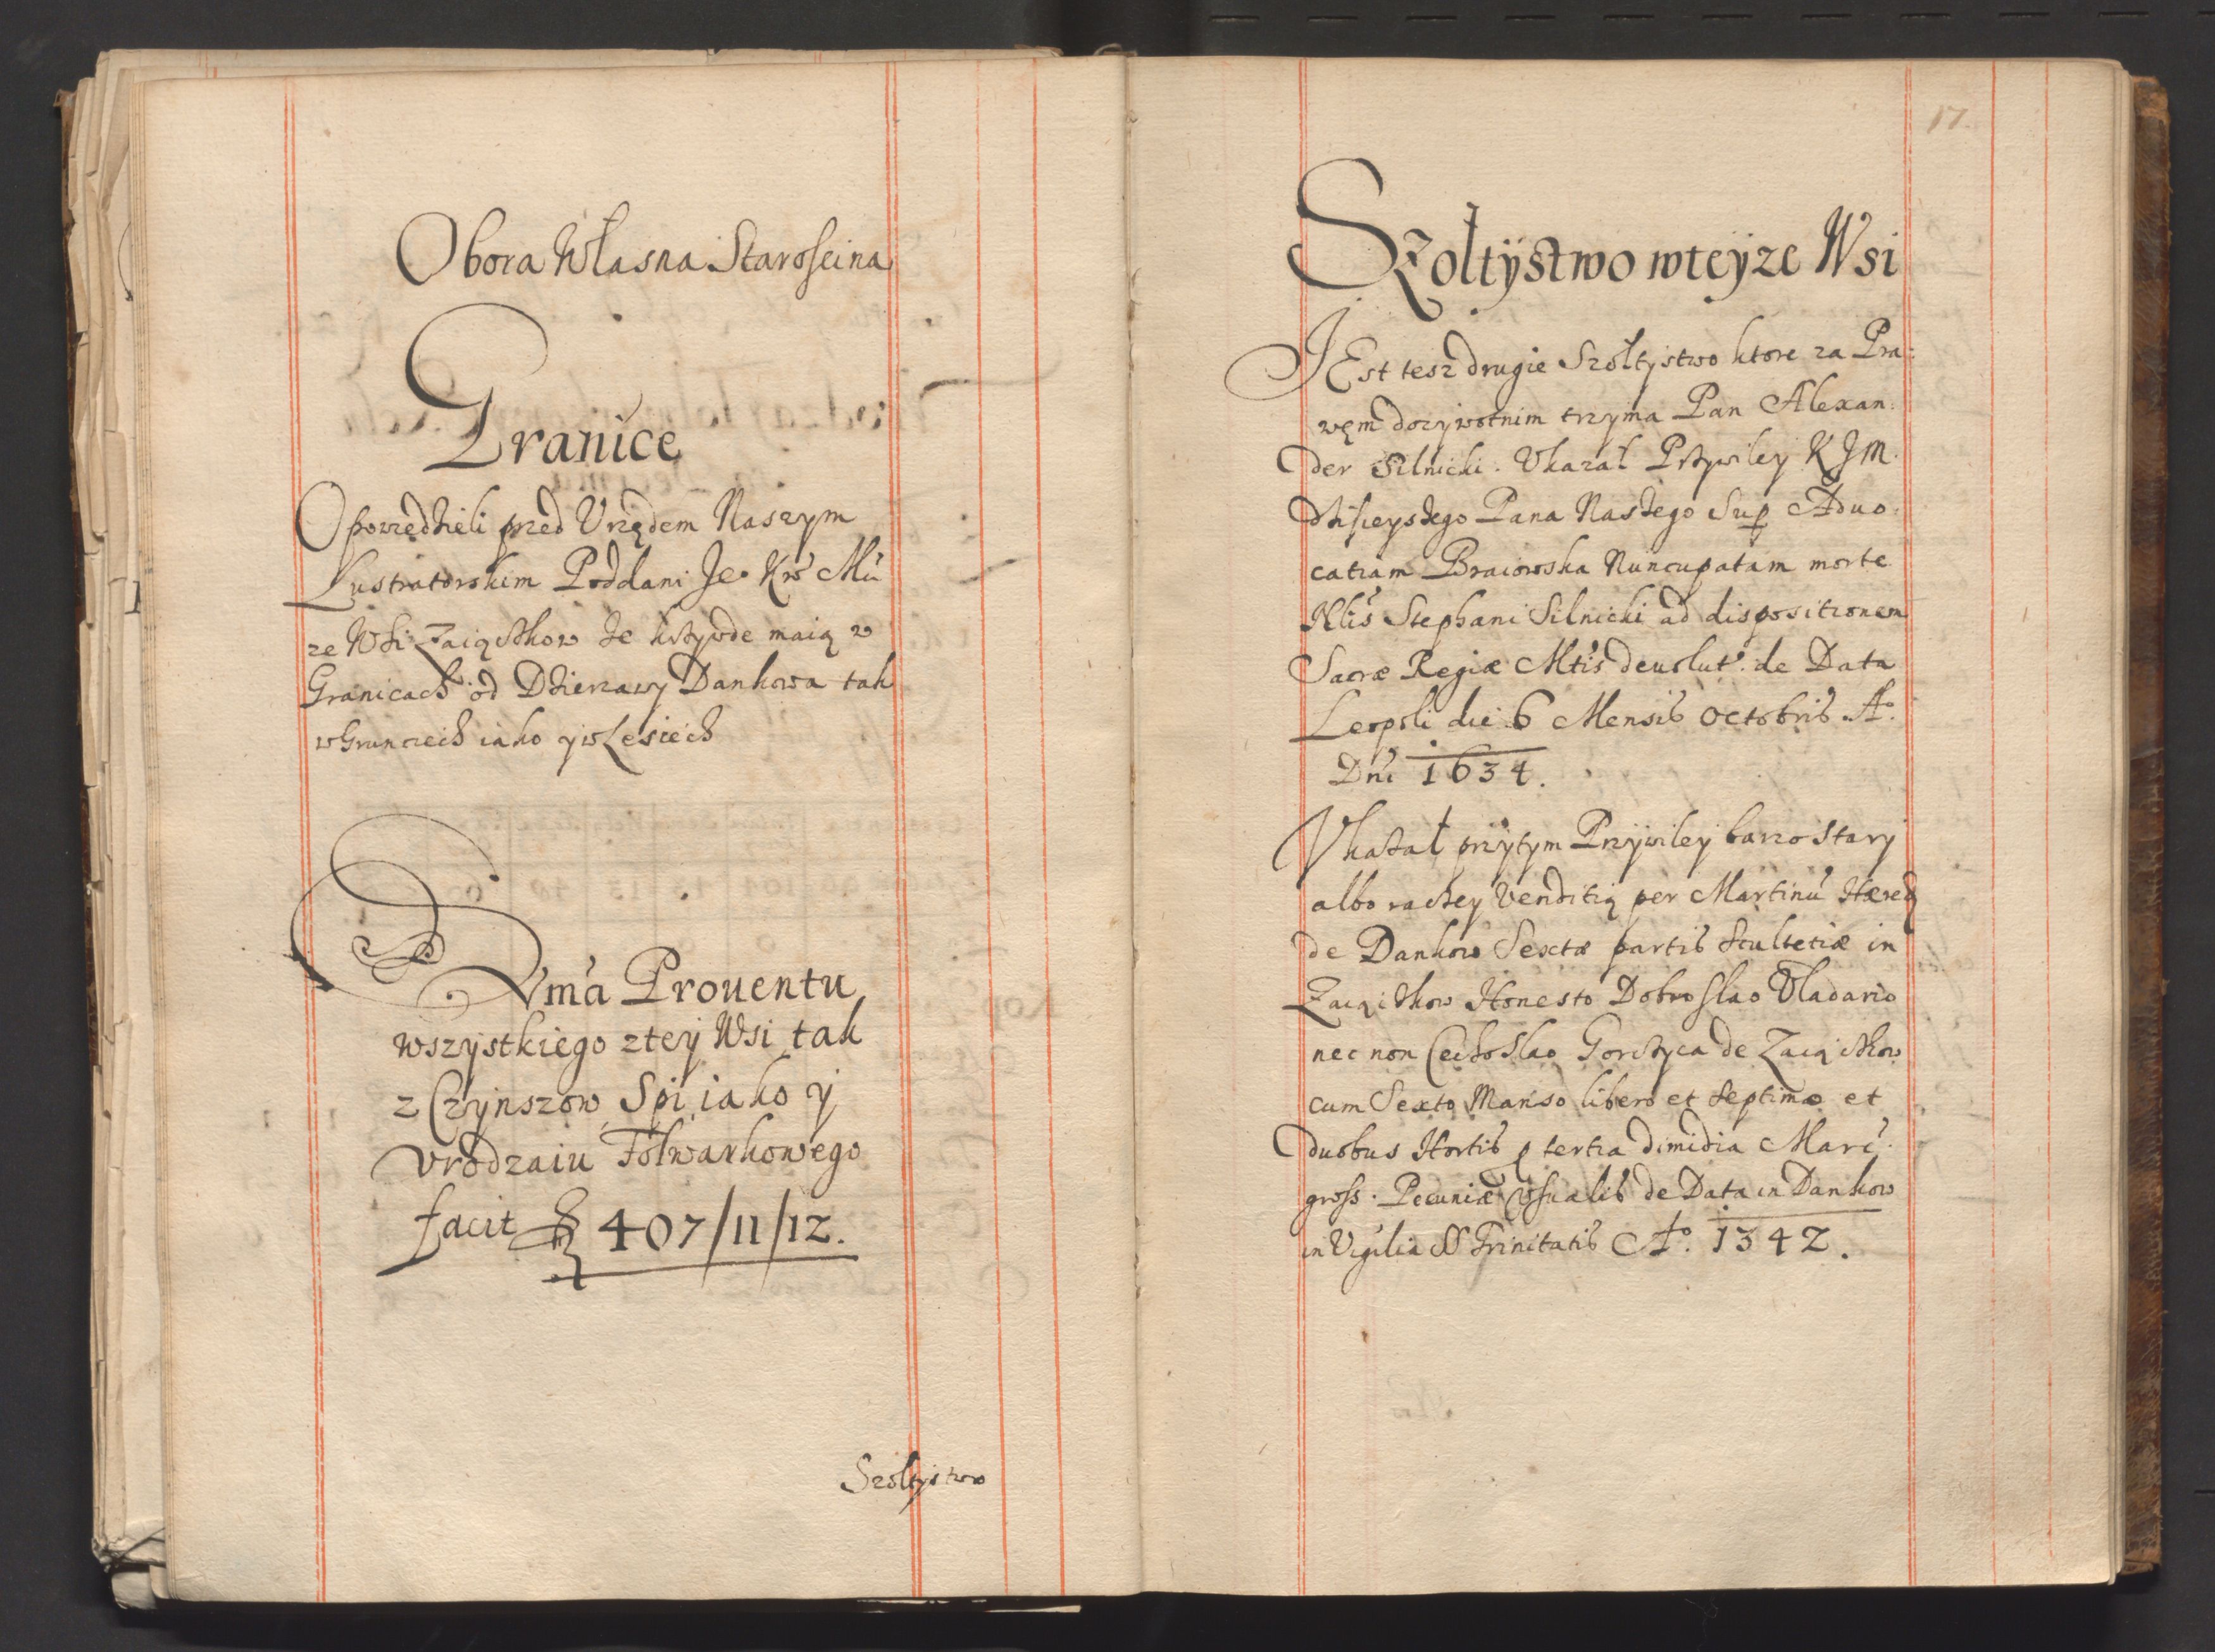 Obora Własna Starościna
Granice
Opowiedzieli przed Vrzędem Naszym
Lustratorskim Poddani Je° Kw Mci
ze Wsi Zaiączkow że krzywde maią w
Granicach od Dzierzawy Dankowa tak
w Grunciech iako y w Lesiech
Suma Prouentu
wszystkiego z tey Wsi tak
z Czynszow, Spi, iako y
vrodzaiu Folwarkowego
facit 407/11/12.
Szołtystwo
17.
Szołtystwo w teyze Wsi
JEst tesz drugie Szołtystwo ktore za Pra:
wem dozywotnim trzyma Pan Alexan:
der Silnicki. Vkazał Przywiley KJM.
dzisieyszego Pana Naszego Sup Aduo:
catiam Braiowska Nuncupatam morte
Nblis Stephani Silnicki ad dispositionem
Sacræ Regiæ Mtis deuolut. de Data
Leopoli die 6 Mensis Octobris A°.
Dni 1634.
Vkazał przytym Przywiley barzo stary
albo raczey Venditią per Martinu Hæred
de Dankow Sextæ partis Scultetiæ in
Zaiączkow Honesto Dobroslao Vladario
nec non Czechoslao Gorczyca de Zaiączkow
cum Sexto Manso libero et septimo et
duobus Hortis p tertia dimidia Marc.
gross. Pecuniæ Vsualis de Data in Dankow
in Vigilia SS Trinitatis A°. 1342.